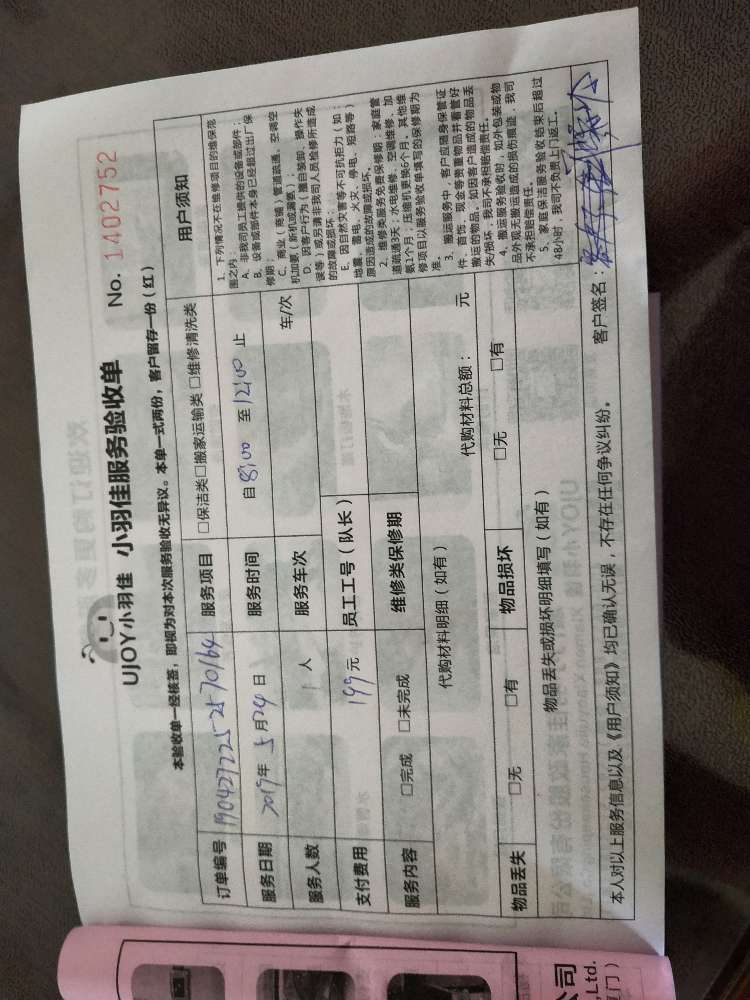 UJOY小羽佳 小羽佳服务验收单 No. 1402752
本验收单一经核签，即视为对本次服务验收无异议。本单一式两份，客户留存一份（红）
订单编号 1904272252570164 服务项目 □保洁类□搬家运输类 □维修清洗类
服务日期 2019年 5月24日 服务时间 自 8:00 至 12:00 止
服务人数 1 人 服务车次 车/次
支付费用 199 元 员工工号（队长）
服务内容 □完成 □未完成 维修类保修期
代购材料明细（如有） 代购材料总额： 元
物品丢失 □无 □有 物品损坏 □无 □有
物品丢失或损坏明细填写（如有）
用户须知
1、下列情况不在维修项目的维保范
围之内：
A、非我司员工提供的设备或部件；
B、设备或部件本身已经超过出厂保
修期；
C、商业（商铺）管道疏通、空调空
机加氨（新机或漏氨）；
D、因客户行为（擅自装卸、操作失
误等）或另请非我司人员检修所造成
的故障或损坏；
E、因自然灾害等不可抗拒力（如：
地震、雷电、火灾、停电、短路等）
原因造成的故障或损坏。
2、维修类服务免费保修期：家庭管
道疏通3天；水电维修、空调维修、加
氨1个月；压缩机更换6个月。其他维
修项目以服务验收单填写的保修期为
准。
3、搬运服务中，客户应随身保管证
件、首饰、现金等贵重物品并看管好
搬运的物品，如因客户造成的物品丢
失/损坏，我司不承担赔偿责任。
4、搬运服务验收时，如外包装或物
品外观无搬运造成的损伤痕迹，我司
不承担赔偿责任。
5、家庭保洁服务验收结束后超过
48小时，我司不负责上门返工。
本人对以上服务信息以及《用户须知》均已确认无误，不存在任何争议纠纷。 客户签名：
公司
Ltd.
厦门）